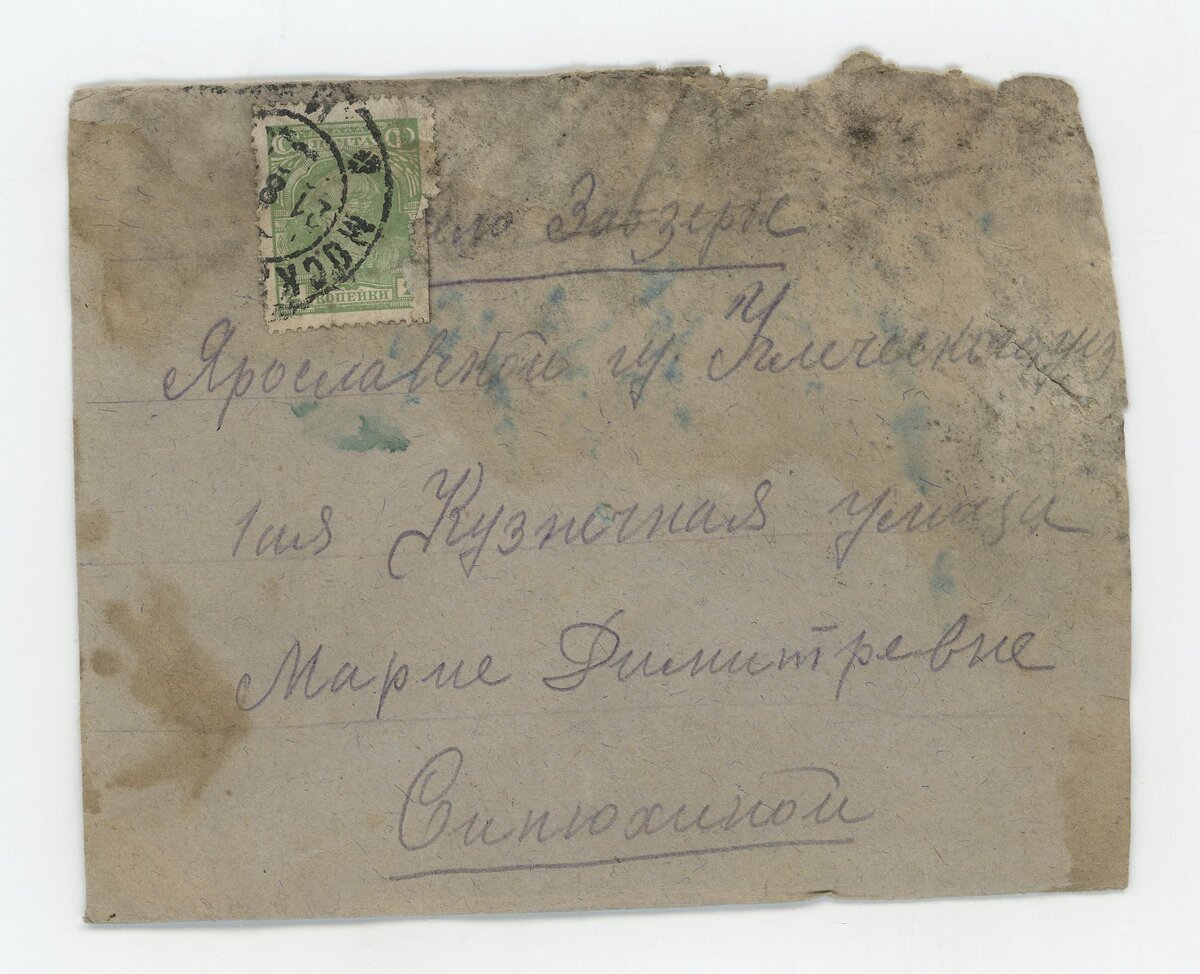 ПОЧТА
МОСК
КОПЕЙКИ
ело Заозерье
Ярославской гу. Угличеського уез
1ая Кузнечная улица
Марие Димитревне
Синюхиной